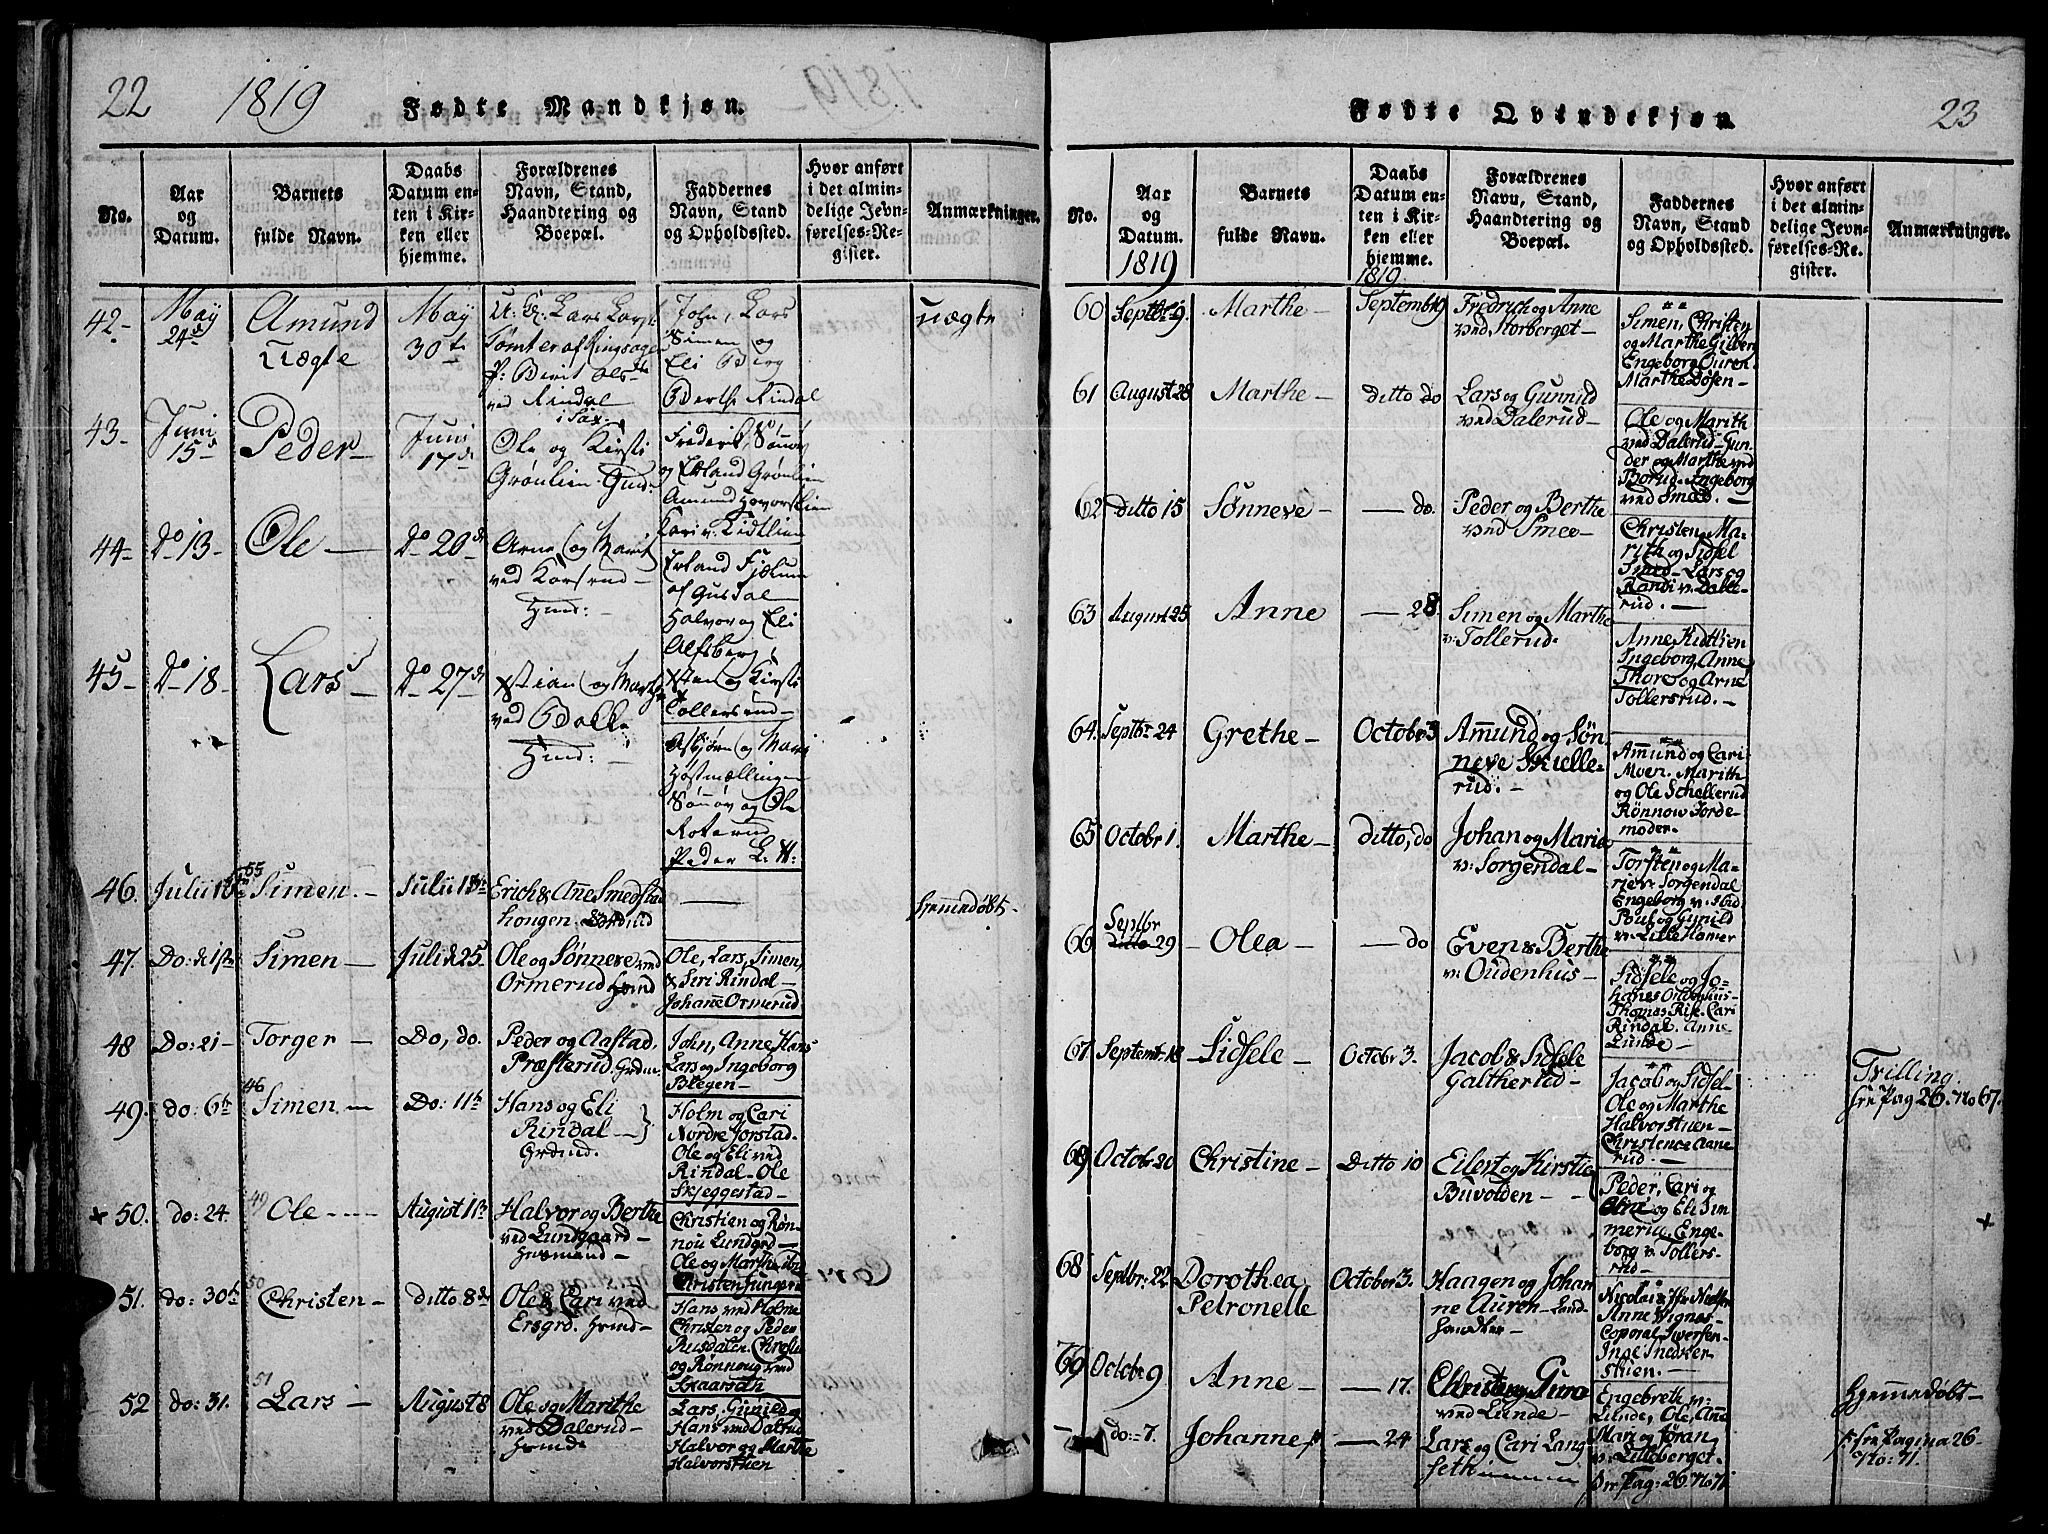 22 1819 Fødte Mandkjøn.
No.
Aar
og
Datum.
Barnets
fulde Navn.
Daabs
Datum en-
ten i Kir-
ken eller
hjemme.
Forældrenes
Navn, Stand,
Haandtering og
Boepæl.
Faddernes
Navn, Stand
og Opholdssted.
Hvor anført
i det almin-
delige Jevn-
førelses-Re-
gister.
Anmærkninger.
42-
May
24d
Amund
Uægte
May
30t
U: K: Lars Lars
Tømter af Ringsager
P: Berit Ols
ved Rindal
John, Lars
Simen og
Eli Berg
Berthe Rindal
uægte
43-
Juni
15d
Peder-
Juni
17d
Ole og Kirsti
Grønlien
Frederik, Sønnøv
og Erland Grønlien
Amund Hovorslien
Kari v. Kidtlien
44-
Do 13-
Ole -
Do 20d
Arne og Marit
ved Korsrud-
Huus:
Erland Fjælum
af Gusdal
Halvor og Eli
Alfsberg
45-
Do 18-
Lars -
Do 27d
Xstian og Marthe
ved Balke
Huus:
Xsten og Kirsti
Tollersrud-
Asbjørn og Mari
Høstmællingen
Sønnøv og Ole
Roterud
Peder
46.
Julii 16
55
Simen. -
Julii 18de
Erich & Ane Smedstad
hongen.
-
hjemmedøbt-
47.
Do: d 1ste
Simen -
Juli d 25.
Ole og Sønneve ved
Ormerud Huusmd
Ole, Lars, Simen,
& Siri Rindal-
Johane Ormerud
48
Do: 21-
Torger -
Do, do.
Peder og Aastad,
Præsterud. Grdm
John, Anne Hans
Lars og Ingeborg
Blegen-
49.
do: 6te
46
Simen -
Do: 11te
Hans og Eli
Rindal -
Grdmd.
Holm og Cari
Nordre Jorstad-
Ole og Eli ved
Rindal-Ole
Skjeggestad-
+ 50.
do: 24.
49
Ole ---
August 1te
Halvor og Berthe
ved Lundgaard-
huusmand-
Christien og Røn-
nou Lundgrd-
Ole og Marthe
Christen
51.
do: 30te
50
Christen-
ditto 8de
Ole & Cari ved
Ersgrd. Huusmd-
Hans ved Holme
Christen og Peder
Rusdalen. Christi
og Rønnoug ved
Skaarsath
52
do: 31.
51
Lars -
August 8
Ole og Marithe
ved Dalerud-
Lars. Gunild og
Hans ved Dalerud
Halvor og Marthe
Halvorstuen
Fødte Qvindekjøn. 23
No.
Aar
og
Datum.
1819
Barnets
fulde Navn.
Daabs
Datum en-
ten i Kir-
ken eller
hjemme.
1819.
Forældrenes
Navn, Stand,
Haandtering og
Boepæl.
Faddernes
Navn, Stand
og Opholdssted.
Hvor anført
i det almin-
delige Jevn-
førelses-Re-
gister.
Anmærkninger.
60
Septbr 9.
Marthe-
Septemb 19
Fredrich og Anne
ved Storberget-
Simen, Christen
og Marthe Gilberg
Engeborg Ouren.
Marthe Døsen-
61
August 28
Marthe-
ditto do
Lars og Gunnild
ved Dalerud-
Ole og Marith
ved Dalerud-Gun-
der og Marthe ved
Borud. Ingeborg
ved Smeb. -
62
ditto 15
Sønneve-
- do.
Peder og Berthe
ved Smee-
Christen, Ma-
rith og Sidsel
Smed-Lars og
Randi v: Dale-
rud. -
63
August 25
Anne
- 28.
Simen og Marthe
v: Tollerud.
Anne Kidtlien
Ingeborg, Anne
Thore og Arne
Tollersrud. -
64.
Septbr. 24
Grethe-
October 3
Amund og Søn-
neve Skielle-
rud. -
Amund og Cari
Moen. Marith
og Ole Schellerud
Rønnow Jorde-
moder.
65
Octobr 1.
Marthe-
ditto, do
Johan og Marie
v: Sorgendal-
Torsten og Ma-
rie v: Sorgendal
Engeborg v: Ibid
Poul og Gunild
v: Lille Hamer
66
Septbr
29
- Olea -
- do
Even & Berthe
v: Oudenhus-
Sidsele og Jo-
hanes Oudenhus-
Thomas Rise. Cari
Rindal. Anne
Lunde-
67.
Septembr 18
Sidsele-
Octobr 3.
Jacob & Sidsele
Galtherud-
Jacob og Sidsel-
Ole og Marthe
Halvorstuen-
Christence Aane
rud. -
Tvilling
see Pag 26. No 67.
69
Octobr 20
Christine-
Ditto 10
Eilert og Kirstie
Buvolden - -
Peder, Cari og
Eline og Eli Sim
merud, Enge-
borg v: Tollers-
rud-
+
68
Septbr. 22
Dorothea
Petronelle
October 3.
Haagen og Johan
ne Auren-Land-
handler-
Nicolai & Jfr Nielsen
Anne Vignes-
Coporal Iversen-
Inge Snedker
stuen. -
70
Octobr 9
Anne -
- 17.
Christen og Guro
ved Lunde-
Engebreth v:
Lunde, Ole, Ane
Hjemmedøbt-
-
do: 7.
Johanne
- 24
Lars og Cari Lang
seth
Mari og Jøran
v: Lilleberget-
see Pag: 26 No 71
see Pagina 26-
No: 71.